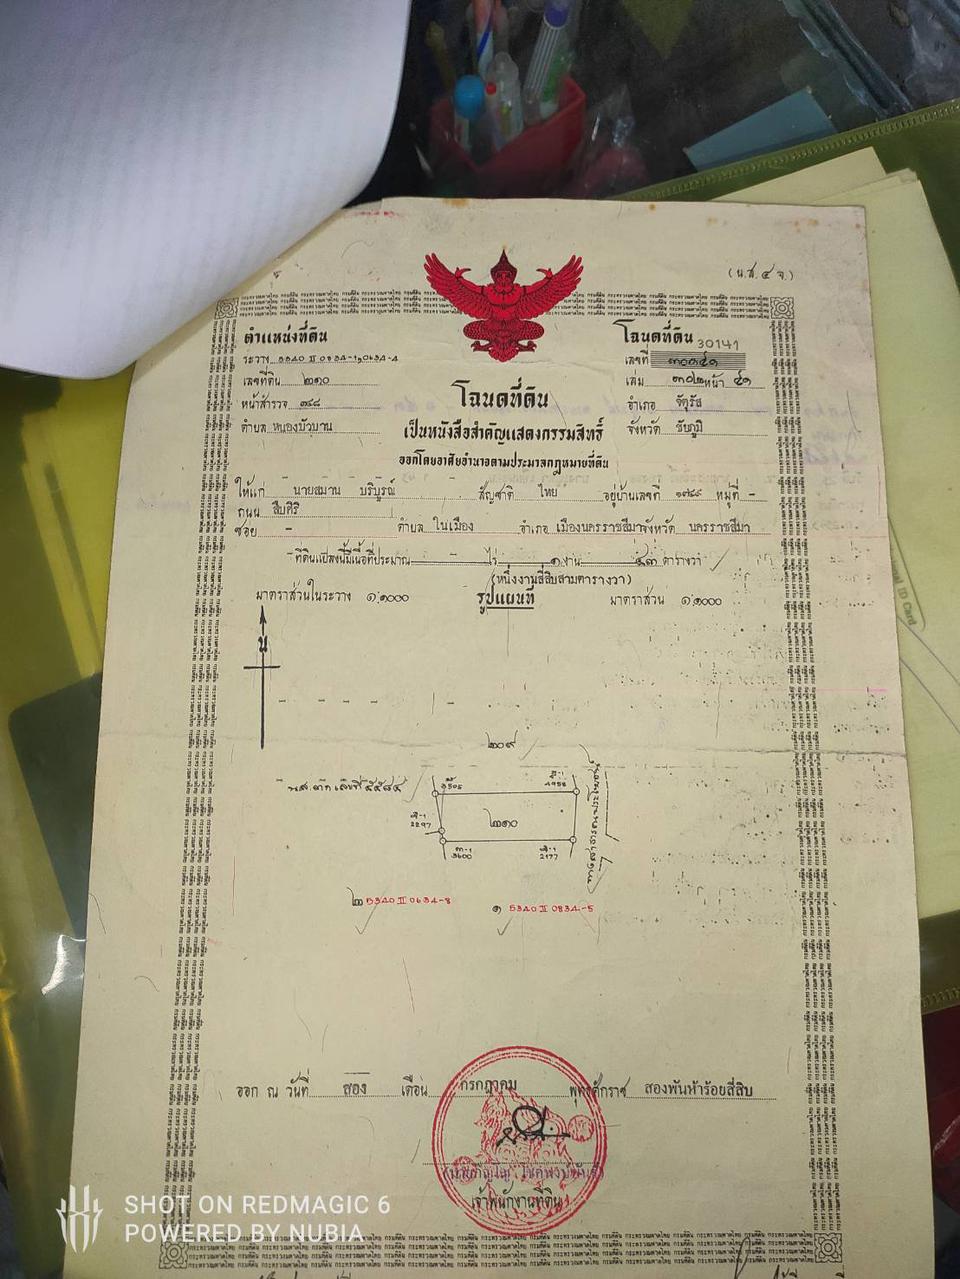 (น.ส.๔ จ.)
ตำแหน่งที่ดิน
โฉนดที่ดิน 30141
ระวาง 5340 II 0834-1,0634-4
เลขที่ ๓๐๑๔๑
เลขที่ดิน ๒๑๐
เล่ม ๓๐๒ หน้า ๔๑
หน้าสำรวจ ๗๔๘
โฉนดที่ดิน
อำเภอ จัตุรัส
ตำบล หนองบัวบาน
เป็นหนังสือสำคัญแสดงกรรมสิทธิ์
จังหวัด ชัยภูมิ
ออกโดยอาศัยอำนาจตามประมวลกฎหมายที่ดิน
ให้แก่ นายสมาน บริบูรณ์ สัญชาติ ไทย อยู่บ้านเลขที่ ๑๗๔๙ หมู่ที่ -
ถนน สืบศิริ
ซอย - ตำบล ในเมือง อำเภอ เมืองนครราชสีมา จังหวัด นครราชสีมา
ที่ดินแปลงนี้มีเนื้อที่ประมาณ - ไร่ ๑ งาน ๔๓ ตารางวา
(หนึ่งงานสี่สิบสามตารางวา)
มาตราส่วนในระวาง ๑:๑000 รูปแผนที่ มาตราส่วน ๑:๑000
น
๒๐๙
น.ส.๓ก เลขที่ ๕๕๘๔
3505
4958
๒๑๐
2297
3600
2177
ทางสาธารณประโยชน์
๒ 5340 II 0634-8
๑ 5340 II 0834-5
ออก ณ วันที่ สอง เดือน กรกฎาคม พุทธศักราช สองพันห้าร้อยสี่สิบ
เจ้าพนักงานที่ดิน
SHOT ON REDMAGIC 6
POWERED BY NUBIA